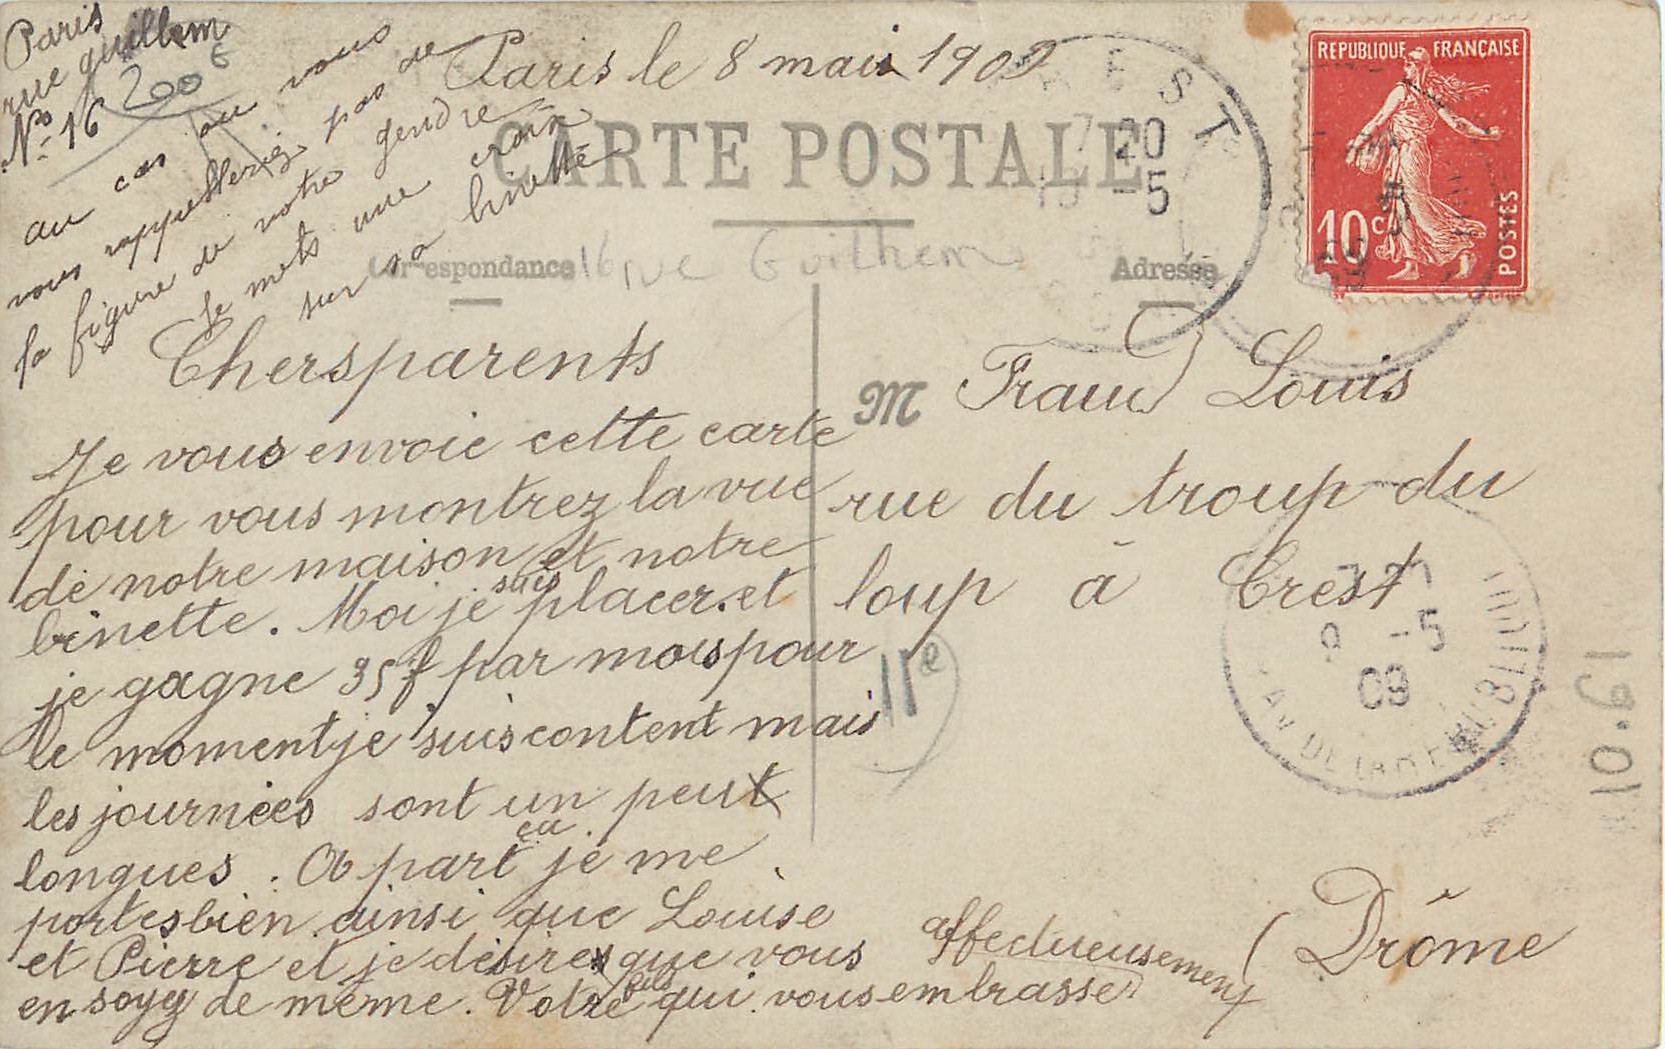 Paris
rue guillem
No 16
200 €
au cas ou vous
vous rappelleriez pas de
la figure de votre gendre
Je mets une croix
sur sa binette
Paris le 8 mai 1909
CARTE POSTALE
Correspondance
16 rue Guilhem
Adresse
REPUBLIQUE FRANÇAISE
10 c
POSTES
REST
7 20
-5
Chers parents
Je vous envoie cette carte
pour vous montrez la vue
de notre maison et notre
binette. Moi je suis placer. et
je gagne 35 f par mois pour
le moment je suis content mais
les journées sont un peut
longues. A part ça je me
portes bien ainsi que Louise
et Pierre et je désire que vous
en soyez de même. Votre fils qui vous embrasse
affectueusement
M Fraud Louis
rue du troup du
loup à Crest
(Drôme
11e
9 -5
09
10.61